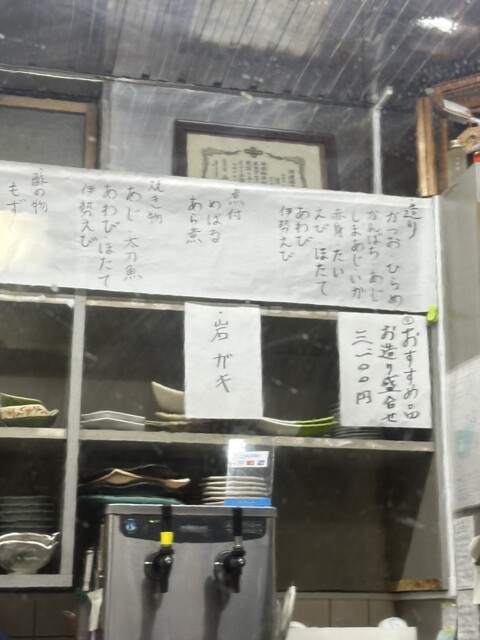 造り
かつお ひらめ
かんぱち あじ
しまあじ いか
赤身 たい
えび ほたて
あわび
伊勢えび
煮付
めばる
あら煮
焼き物
あじ 太刀魚
あわび ほたて
伊勢えび
酢の物
もず
おすすめ品
お造り盛合せ
三二〇〇円
・岩ガキ